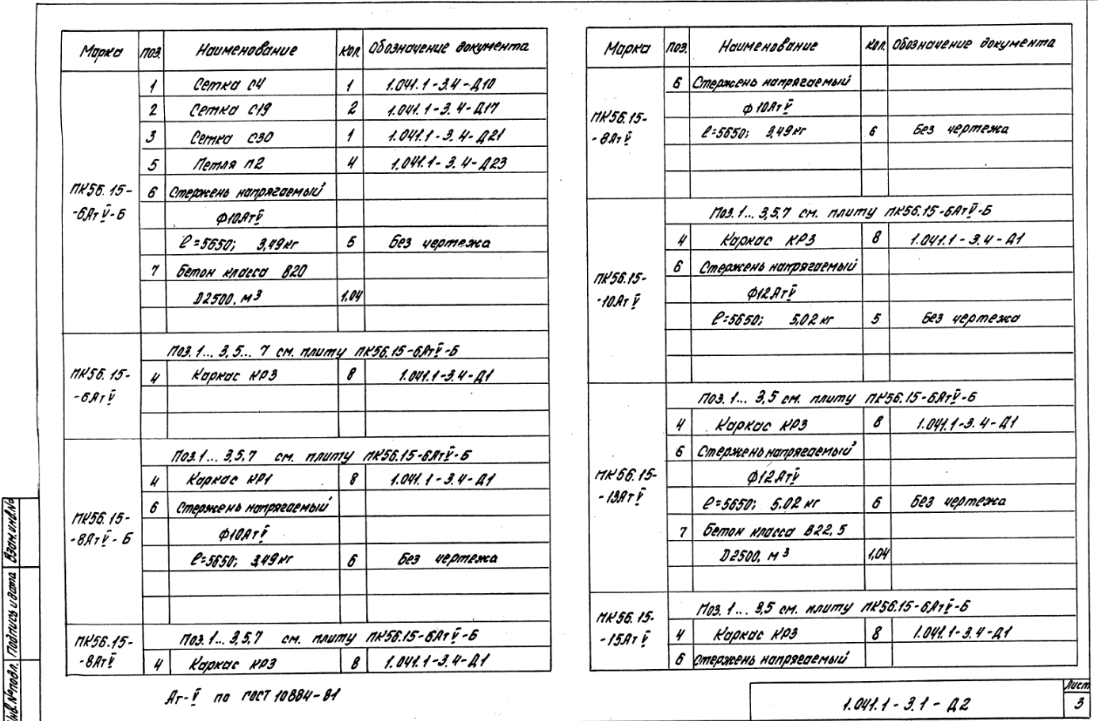 Марка поз. Наименование кол. Обозначение документа
1 Сетка С4 1 1.041.1-3.4-Д10
2 Сетка С19 2 1.041.1-3.4-Д17
3 Сетка С30 1 1.041.1-3.4-Д21
5 Петля П2 4 1.041.1-3.4-Д23
ПК56.15-
-6АтV-Б
6 Стержень напрягаемый
Ф10АтV
ℓ=5650; 3,49кг 5 Без чертежа
7 Бетон класса В20
D2500, м3 1,04
ПК56.15-
-6АтV
Поз. 1... 3, 5... 7 см. плиту ПК56.15-6АтV-Б
4 Каркас КР3 8 1.041.1-3.4-Д1
ПК56.15-
-8АтV-Б
Поз. 1... 3,5,7 см. плиту ПК56.15-6АтV-Б
4 Каркас КР1 8 1.041.1-3.4-Д1
6 Стержень напрягаемый
Ф10АтV
ℓ=5650; 3,49кг 6 Без чертежа
ПК56.15-
-8АтV
Поз. 1... 3,5,7 см. плиту ПК56.15-6АтV-Б
4 Каркас КР3 8 1.041.1-3.4-Д1
Ат-V по ГОСТ 10884-81
Марка поз. Наименование кол. Обозначение документа
ПК56.15-
-8АтV
6 Стержень напрягаемый
Ф10АтV
ℓ=5650; 3,49кг 6 Без чертежа
ПК56.15-
-10АтV
Поз. 1... 3,5,7 см. плиту ПК56.15-6АтV-Б
4 Каркас КР3 8 1.041.1-3.4-Д1
6 Стержень напрягаемый
Ф12АтV
ℓ=5650; 5,02 кг 5 Без чертежа
ПК56.15-
-13АтV
Поз. 1... 3,5 см. плиту ПК56.15-6АтV-Б
4 Каркас КР3 8 1.041.1-3.4-Д1
6 Стержень напрягаемый
Ф12АтV
ℓ=5650; 5,02 кг 6 Без чертежа
7 Бетон класса В22,5
D2500, м3 1,04
ПК56.15-
-15АтV
Поз. 1... 3,5 см. плиту ПК56.15-6АтV-Б
4 Каркас КР3 8 1.041.1-3.4-Д1
6 Стержень напрягаемый
1.041.1-3.1-Д2
Лист
3
Взам.инв.№
Подпись и дата
Инв.№подл.